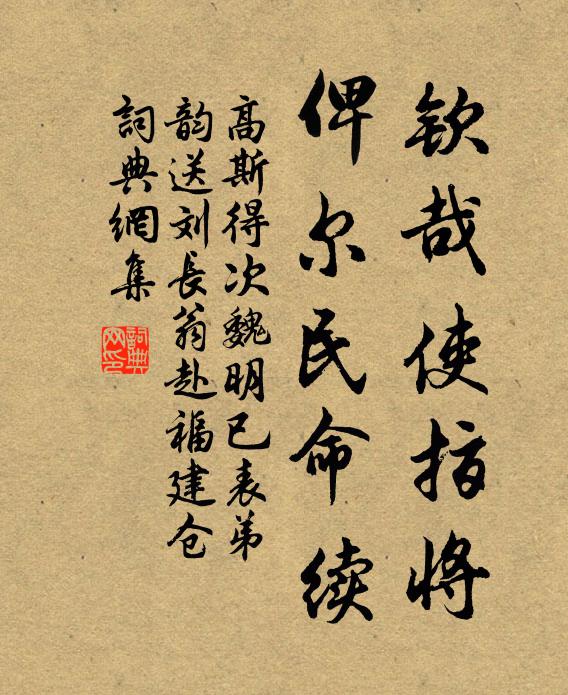 钦哉使指将
俾尔民命续
高斯得次魏明已表弟
韵送刘长翁赴福建仓
詞典網集
詞典网印